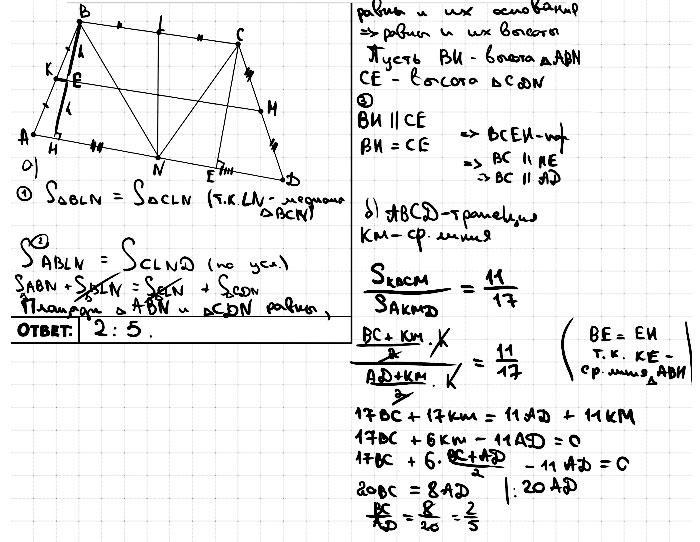 B
C
K
E
M
A
H
N
E
D
а)
① S△BLN = S△CLN (т.к. LN - медиана
△BCN)
②
SABLN = SCLND (по усл.)
SABN + S△BLN = S△CLN + SCDN
Площади △ABN и △CDN равны,
ОТВЕТ: 2 : 5 .
равны и их основания
=> равны и их высоты
Пусть BH - высота △ABN
CE - высота △CDN
③
BH || CE
BH = CE
=> BCEH - пар
=> BC || HE
=> BC || AD
б) ABCD - трапеция
KM - ср. линия
SKBCM / SAKMD = 11/17
(BC + KM)/2 · K / (AD + KM)/2 · K = 11/17
( BE = EH
т. к. KE -
ср. линия △ABH )
17BC + 17KM = 11AD + 11KM
17BC + 6KM - 11AD = 0
17BC + 6 · (BC + AD)/2 - 11AD = 0
20BC = 8AD |: 20AD
BC/AD = 8/20 = 2/5